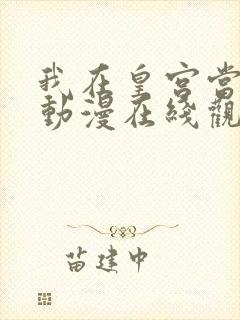 我在皇宫當
動漫在綫觀
苗建中